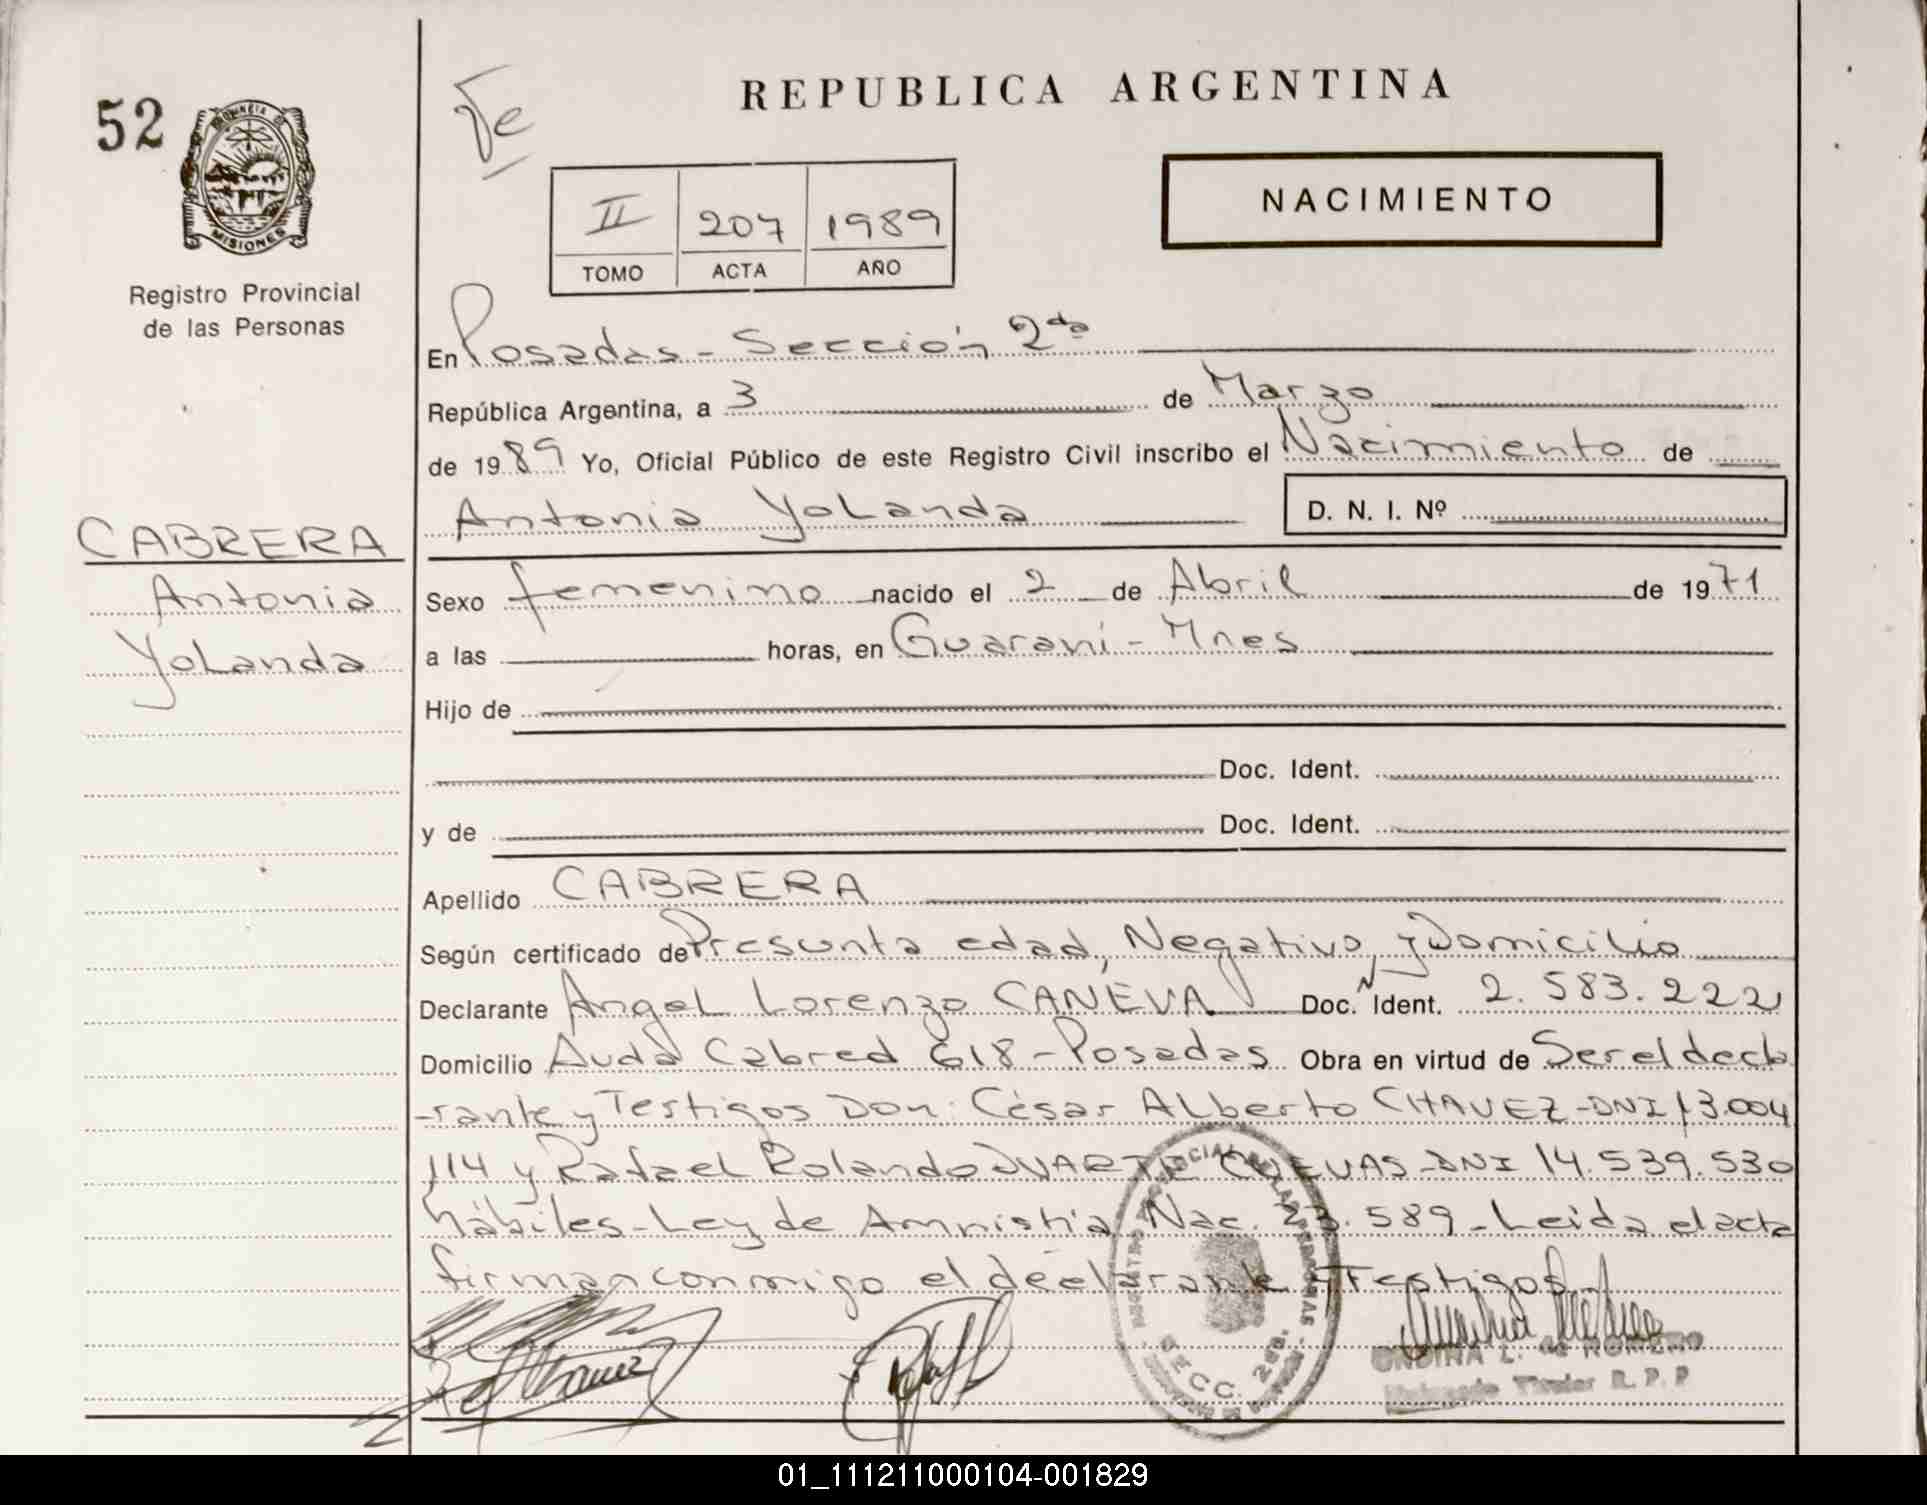 REPUBLICA ARGENTINA
52
PROVINCIA DE
MISIONES
Registro Provincial
de las Personas
NACIMIENTO
II 207 1989
TOMO ACTA AÑO
En Posadas - Sección 2da
República Argentina, a 3 de Marzo
de 1989 Yo, Oficial Público de este Registro Civil inscribo el Nacimiento de
Antonia Yolanda D. N. I. Nº
CABRERA
Antonia
Yolanda
Sexo femenino nacido el 2 de Abril de 1971
a las horas, en Guaraní - Mnes
Hijo de
Doc. Ident.
y de Doc. Ident.
Apellido CABRERA
Según certificado de Presunta edad, Negativo, y Domicilio
Declarante Angel Lorenzo CANEVA Doc. Ident. 2.583.222
Domicilio Avda Cabred 618 - Posadas Obra en virtud de Ser el decla
-rante y Testigos Don: César Alberto CHAVEZ - DNI 13.004
114 y Rafael Rolando DUARTE CUEVAS - DNI 14.539.530
hábiles - Ley de Amnistía Nac. 23.589 - Leida el acta
firman conmigo el declarante y Testigos -
SECC. 2da.
ONDINA L. de ROMERO
Titular R. P. P
01_111211000104-001829